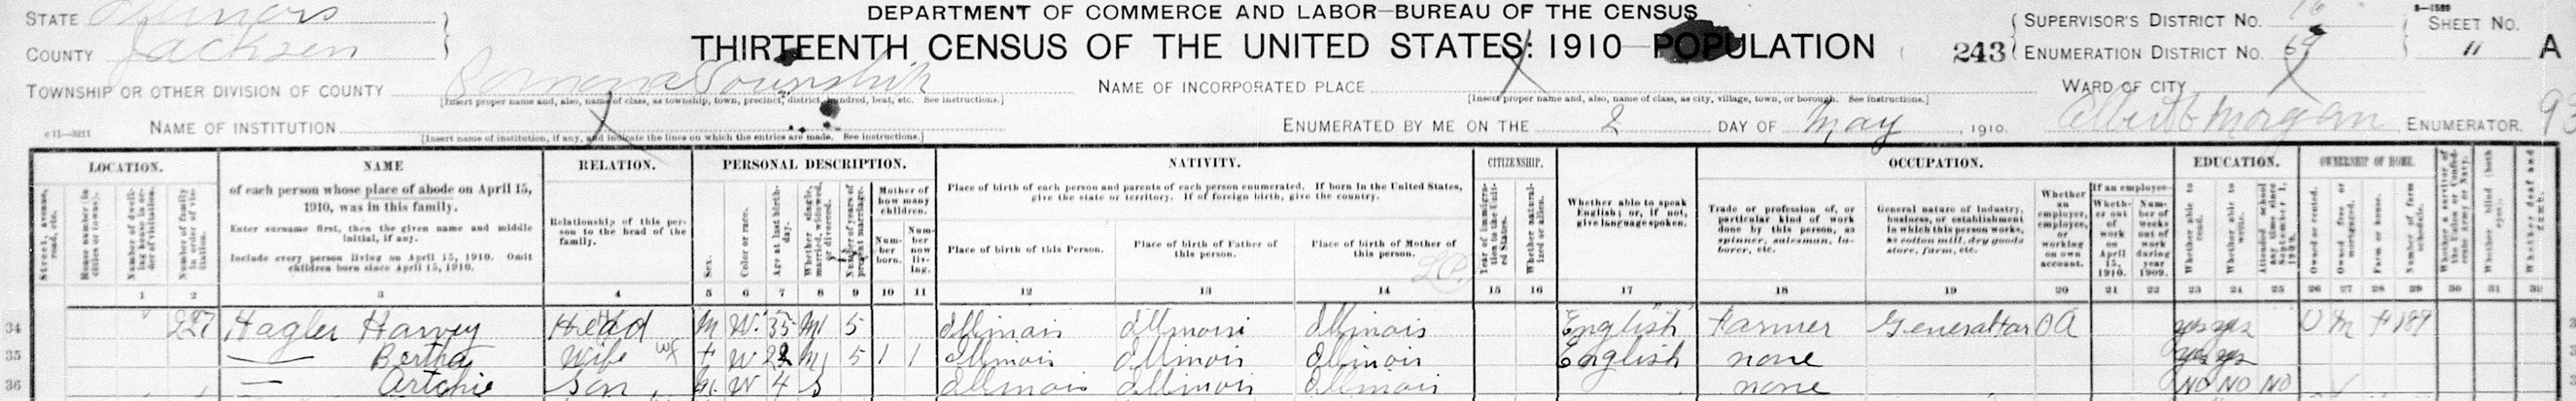 STATE Illinois
DEPARTMENT OF COMMERCE AND LABOR—BUREAU OF THE CENSUS
COUNTY Jackson
THIRTEENTH CENSUS OF THE UNITED STATES: 1910—POPULATION
243
SUPERVISOR'S DISTRICT No.
ENUMERATION DISTRICT No. 69
8—1589
SHEET No.
11 A
TOWNSHIP OR OTHER DIVISION OF COUNTY Township
[Insert proper name and, also, name of class, as township, town, precinct, district, hundred, beat, etc. See instructions.]
NAME OF INCORPORATED PLACE X
[Insert proper name and, also, name of class, as city, village, town, or borough. See instructions.]
WARD OF CITY X
NAME OF INSTITUTION X
[Insert name of institution, if any, and indicate the lines on which the entries are made. See instructions.]
ENUMERATED BY ME ON THE 2 DAY OF May, 1910. Albert Morgan, ENUMERATOR. 93
LOCATION. NAME RELATION. PERSONAL DESCRIPTION. NATIVITY. CITIZENSHIP. OCCUPATION. EDUCATION. OWNERSHIP OF HOME.
Street, avenue, road, etc.
House number (in cities or towns).
Number of dwelling house in order of visitation.
Number of family in order of visitation.
of each person whose place of abode on April 15, 1910, was in this family.
Enter surname first, then the given name and middle initial, if any.
Include every person living on April 15, 1910. Omit children born since April 15, 1910.
Relationship of this person to the head of the family.
Sex.
Color or race.
Age at last birthday.
Whether single, married, widowed, or divorced.
Number of years of present marriage.
Mother of how many children.
Number born.
Number now living.
Place of birth of each person and parents of each person enumerated. If born in the United States, give the state or territory. If of foreign birth, give the country.
Place of birth of this Person.
Place of birth of Father of this person.
Place of birth of Mother of this person.
Year of immigration to the United States.
Whether naturalized or alien.
Whether able to speak English; or, if not, give language spoken.
Trade or profession of, or particular kind of work done by this person, as spinner, salesman, laborer, etc.
General nature of industry, business, or establishment in which this person works, as cotton mill, dry goods store, farm, etc.
Whether an employer, employee, or working on own account.
If an employee—
Whether out of work on April 15, 1910.
Number of weeks out of work during year 1909.
Whether able to read.
Whether able to write.
Attended school any time since September 1, 1909.
Owned or rented.
Owned free or mortgaged.
Farm or house.
Number of farm schedule.
Whether a survivor of the Union or Confederate Army or Navy.
Whether blind (both eyes).
Whether deaf and dumb.
1 2 3 4 5 6 7 8 9 10 11 12 13 14 15 16 17 18 19 20 21 22 23 24 25 26 27 28 29 30 31 32
34 227 Hagler Harvey Head M W 35 M1 5 Illinois Illinois Illinois English Farmer General Far OA yes yes O M F 189
35 — Bertha Wife F W 22 M1 5 1 1 Illinois Illinois Illinois English none yes yes
36 — Artchie Son M W 4 S Illinois Illinois Illinois none NO NO NO